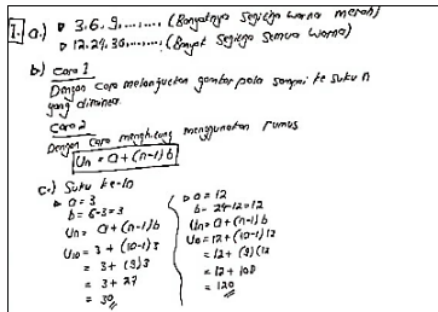 1. a.) ▷ 3, 6, 9, ......... (Banyaknya segitiga warna merah)
▷ 12, 24, 36, ......... (Banyak segitiga semua warna)
b) Cara 1
Dengan cara melanjutkan gambar pola sampai ke suku n
yang diminta.
Cara 2
Dengan cara menghitung menggunakan rumus
Un = a + (n-1) b
c.) Suku ke-10
▷ a = 3
b = 6-3 = 3
Un = a + (n-1) b
U10 = 3 + (10-1) 3
= 3 + (9) 3
= 3 + 27
= 30
▷ a = 12
b = 24-12 = 12
Un = a + (n-1) b
U10 = 12 + (10-1) 12
= 12 + (9) (12
= 12 + 108
= 120